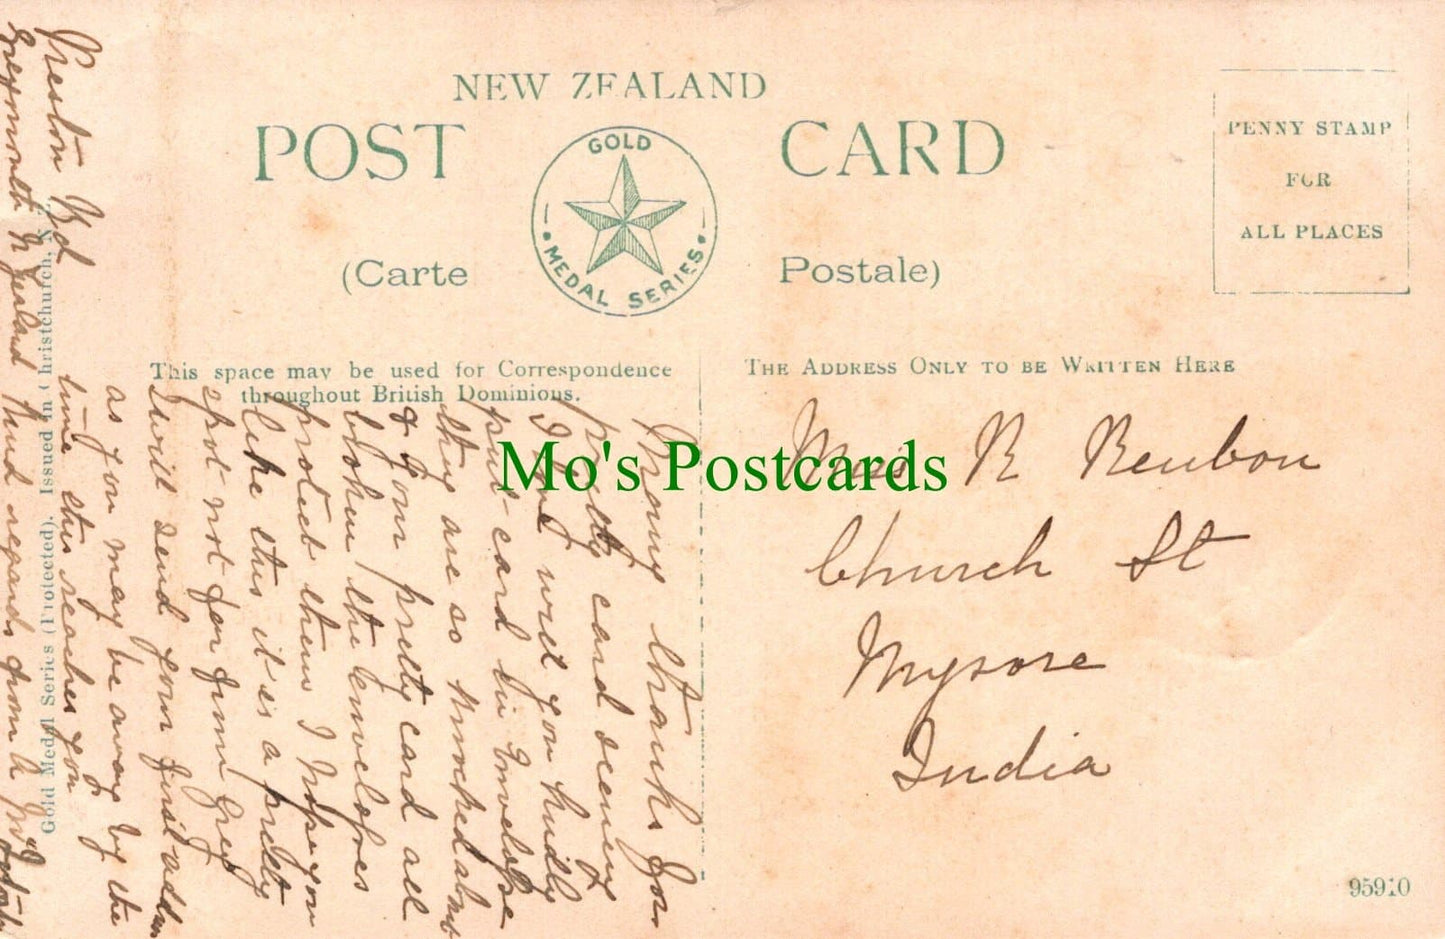 NEW ZEALAND
POST CARD
GOLD MEDAL SERIES
(Carte Postale)
PENNY STAMP
FOR
ALL PLACES
This space may be used for Correspondence
throughout British Dominions.
THE ADDRESS ONLY TO BE WRITTEN HERE
Mo's Postcards
Miss R Reubon
Church St
Mysore
India
95910
Gold Medal Series (Protected). Issued in Christchurch, N.Z.
Preston Rd
Greymouth N Zealand
Many thanks for
pretty card seeing
I dont will you kindly
put card in Envelope
they are so knocked about
& your pretty card all
broken the Envelopes
protect them I hope you
like this it is a pretty
spot not far from Grey
I will send your first address
as you may be away by the
time this reaches you
kind regards from A